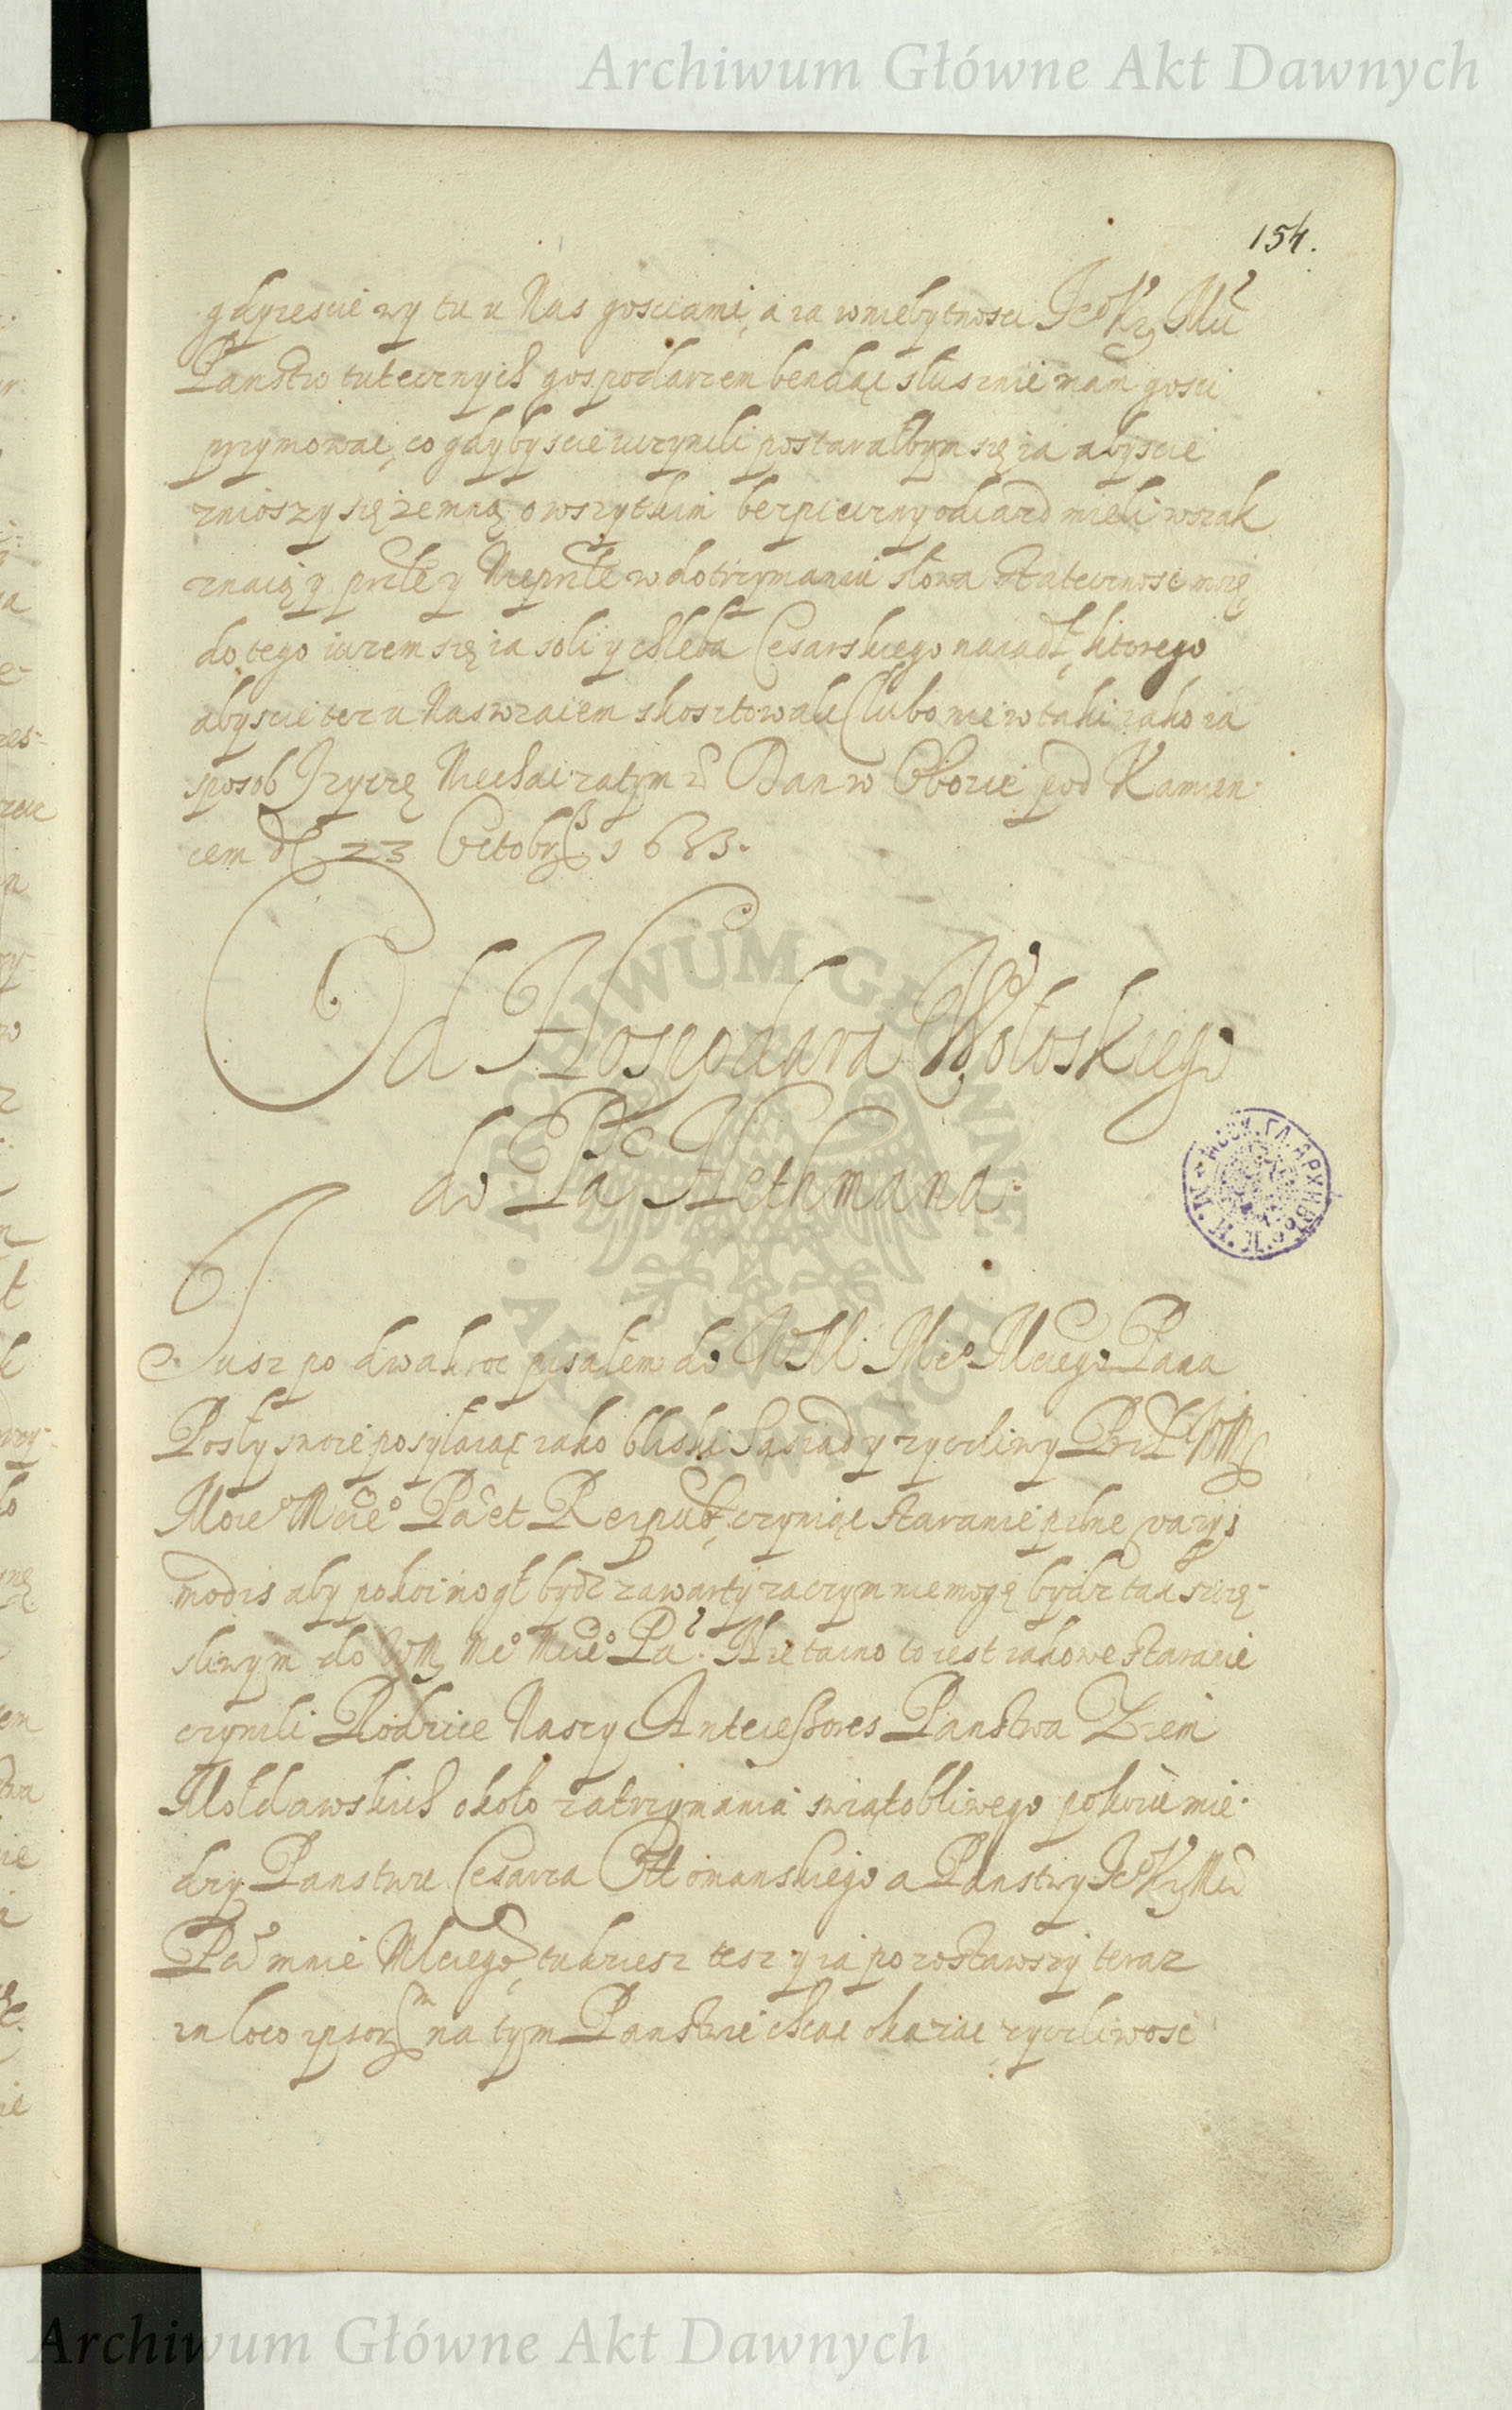 Archiwum Główne Akt Dawnych
154.
gdyzescie wy tu u Nas gosciami, a ia w niebytnosci Je° Kr Mci
Panstw tutecznych gospodarzem bendąc słusznie mam gosci
przymowac, co gdybyscie uczynili postarałbym się ia abyscie
zniozszy się ze mną o wszytkim bezpieczny odiazd mieli wszak
znaią y przłe y Nieprzłe w dotrzymaniu słowa statecznosc moię
do tego iuzem się ia soli y chleba Cesarskiego naiadł, ktorego
abyscie tez u Nas wzaiem skosztowali (lubo nie w taki iako ia
sposob) zyczę Niechai zatym Dan w Obozie pod Kamien
cem d 23 Octobr 1683.
Od Hospodara Wołoskiego
do Pa Hethmana.
Jusz po dwakroc pisałem do WM Me° Mciego Pana
Posły swoie posyłaiąc iako bliski Sąsiad y zyczliwy WM
Moie° Mcie° Pa et Rzeipub, czyniąc staranie pilne varijs
modis aby pokoi mogł bydz zawarty zaczym nie mogę bydz tak szczę-
sliwym do WM Me° Mcie° Pa. Nie taino to iest iakowe staranie
czynili Rodzice Naszy Antecessores Panstwa Ziem
Mołdawskich około zatrzymania swiątobliwego pokoiu mie
dzy Panstwe Cesarza Ottomanskiego a Panstwy Je° Kr Mci
Pa mnie Mciego, takiesz tesz y ia pozostawszy teraz
in loco ipsor na tym Panstwie chcąc okazac zyczliwosc
Archiwum Główne Akt Dawnych